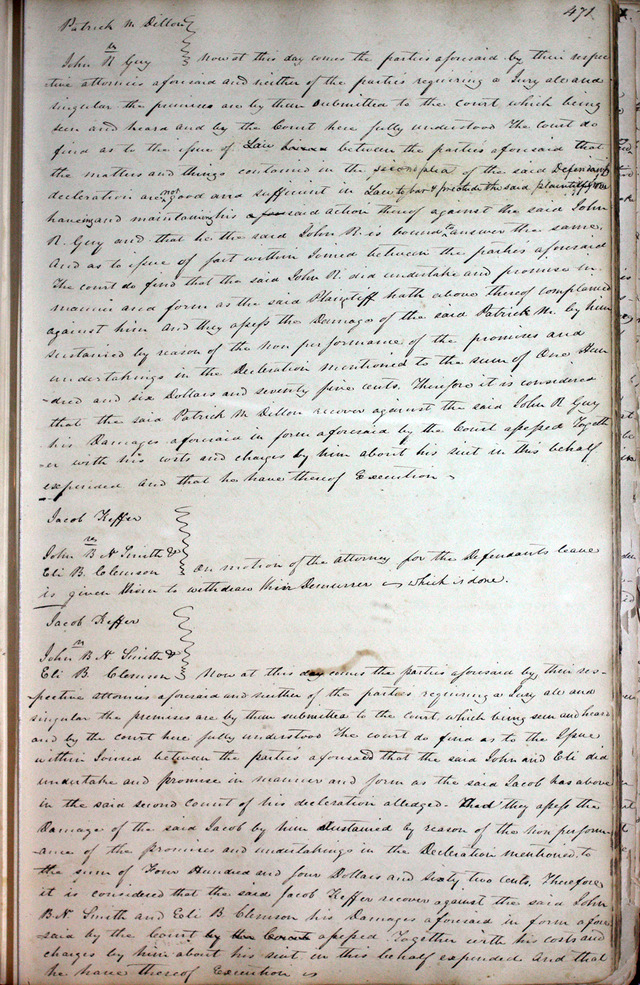 471
Patrick M. Dillon
vs
John R Guy Now at this day comes the parties aforesaid by their respec
tive attornies aforesaid and neither of the parties requiring a Jury all and
singular the premises are by them submitted to the court which being
seen and heard and by the Court here fully understood The court do
find as to the issue of Law between the parties aforesaid that
the matters and things contained in the second plea of the said Defendants
declaration are not good and sufficient in Law to bar & preclude the said plaintiff from
having and maintaining his said action thereof against the said John
R. Guy and that he the said John R. is bound to answer the same.
And as to issue of fact within Joined between the parties aforesaid
The court do find that the said John R. did undertake and promise in
manner and form as the said Plaintiff hath above thereof complained
against him and they assess the Damage of the said Patrick M. by him
sustained by reason of the non performance of the promises and
undertakings in the Declaration mentioned to the sum of One Hun
-dred and six Dollars and seventy five cents. Therefore it is considered
that the said Patrick M Dillon recover against the said John R Guy
his Damages aforesaid in form aforesaid by the Court assessed Togeth
-er with his costs and charges by him about his suit in this behalf
expended and that he have thereof Execution
Jacob Keffer
vs
John B N Smith &
Eli B. Clemson On motion of the attorney for the Defendants leave
is given them to withdraw their Demurrer which is done.
Jacob Keffer
vs
John B N Smith &
Eli B Clemson Now at this day comes the parties aforesaid by their res-
pective attornies aforesaid and neither of the parties requiring a Jury all and
singular the premises are by them submitted to the court which being seen and heard
and by the court here fully understood The court do find as to the Issue
within Joined between the parties aforesaid that the said John and Eli did
undertake and promise in manner and form as the said Jacob has above
in the said second Count of his decleration alledged. And they assess the
Damage of the said Jacob by him sustained by reason of the non perform-
ance of the promises and undertakings in the Decleration mentioned to
the sum of Four Hundred and four Dollars and sixty two cents. Therefore
it is considered that the said Jacob Keffer recover against the said John
B N Smith and Eli B. Clemson his Damages aforesaid in form afore
said by the Court by the Court assessed Together with his costs and
charges by him about his suit in this behalf expended And that
he have thereof Execution